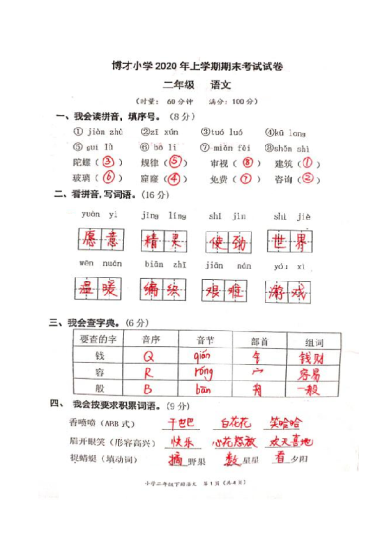 博才小学2020年上学期期末考试试卷
二年级 语文
(时量: 60分钟 满分: 100分)
一、我会读拼音，填序号。(8分)
① jiàn zhù ②zī xún ③tuó luó ④kū long
⑤ guī lǜ ⑥ bō li ⑦ miǎn fèi ⑧shěn shì
陀螺（③） 规律（⑤） 审视（⑧） 建筑（①）
玻璃（⑥） 窟窿（④） 免费（⑦） 咨询（②）
二、看拼音,写词语。(16分)
yuàn yì jīng líng shǐ jìn shì jiè
愿意 精灵 使劲 世界
wēn nuǎn biān zhī jiān nán yóu xì
温暖 编织 艰难 游戏
三、我会查字典。(6分)
要查的字 音序 音节 部首 组词
钱 Q qián 钅 钱财
容 R róng 宀 容易
般 B bān 舟 一般
四、 我会按要求积累词语。(9分)
香喷喷（ABB 式） 干巴巴 白花花 笑哈哈
眉开眼笑（形容高兴） 快乐 心花怒放 欢天喜地
捉蜻蜓（填动词） 摘 野果 数 星星 看 夕阳
小学二年级下册语文 第1页（共4页）